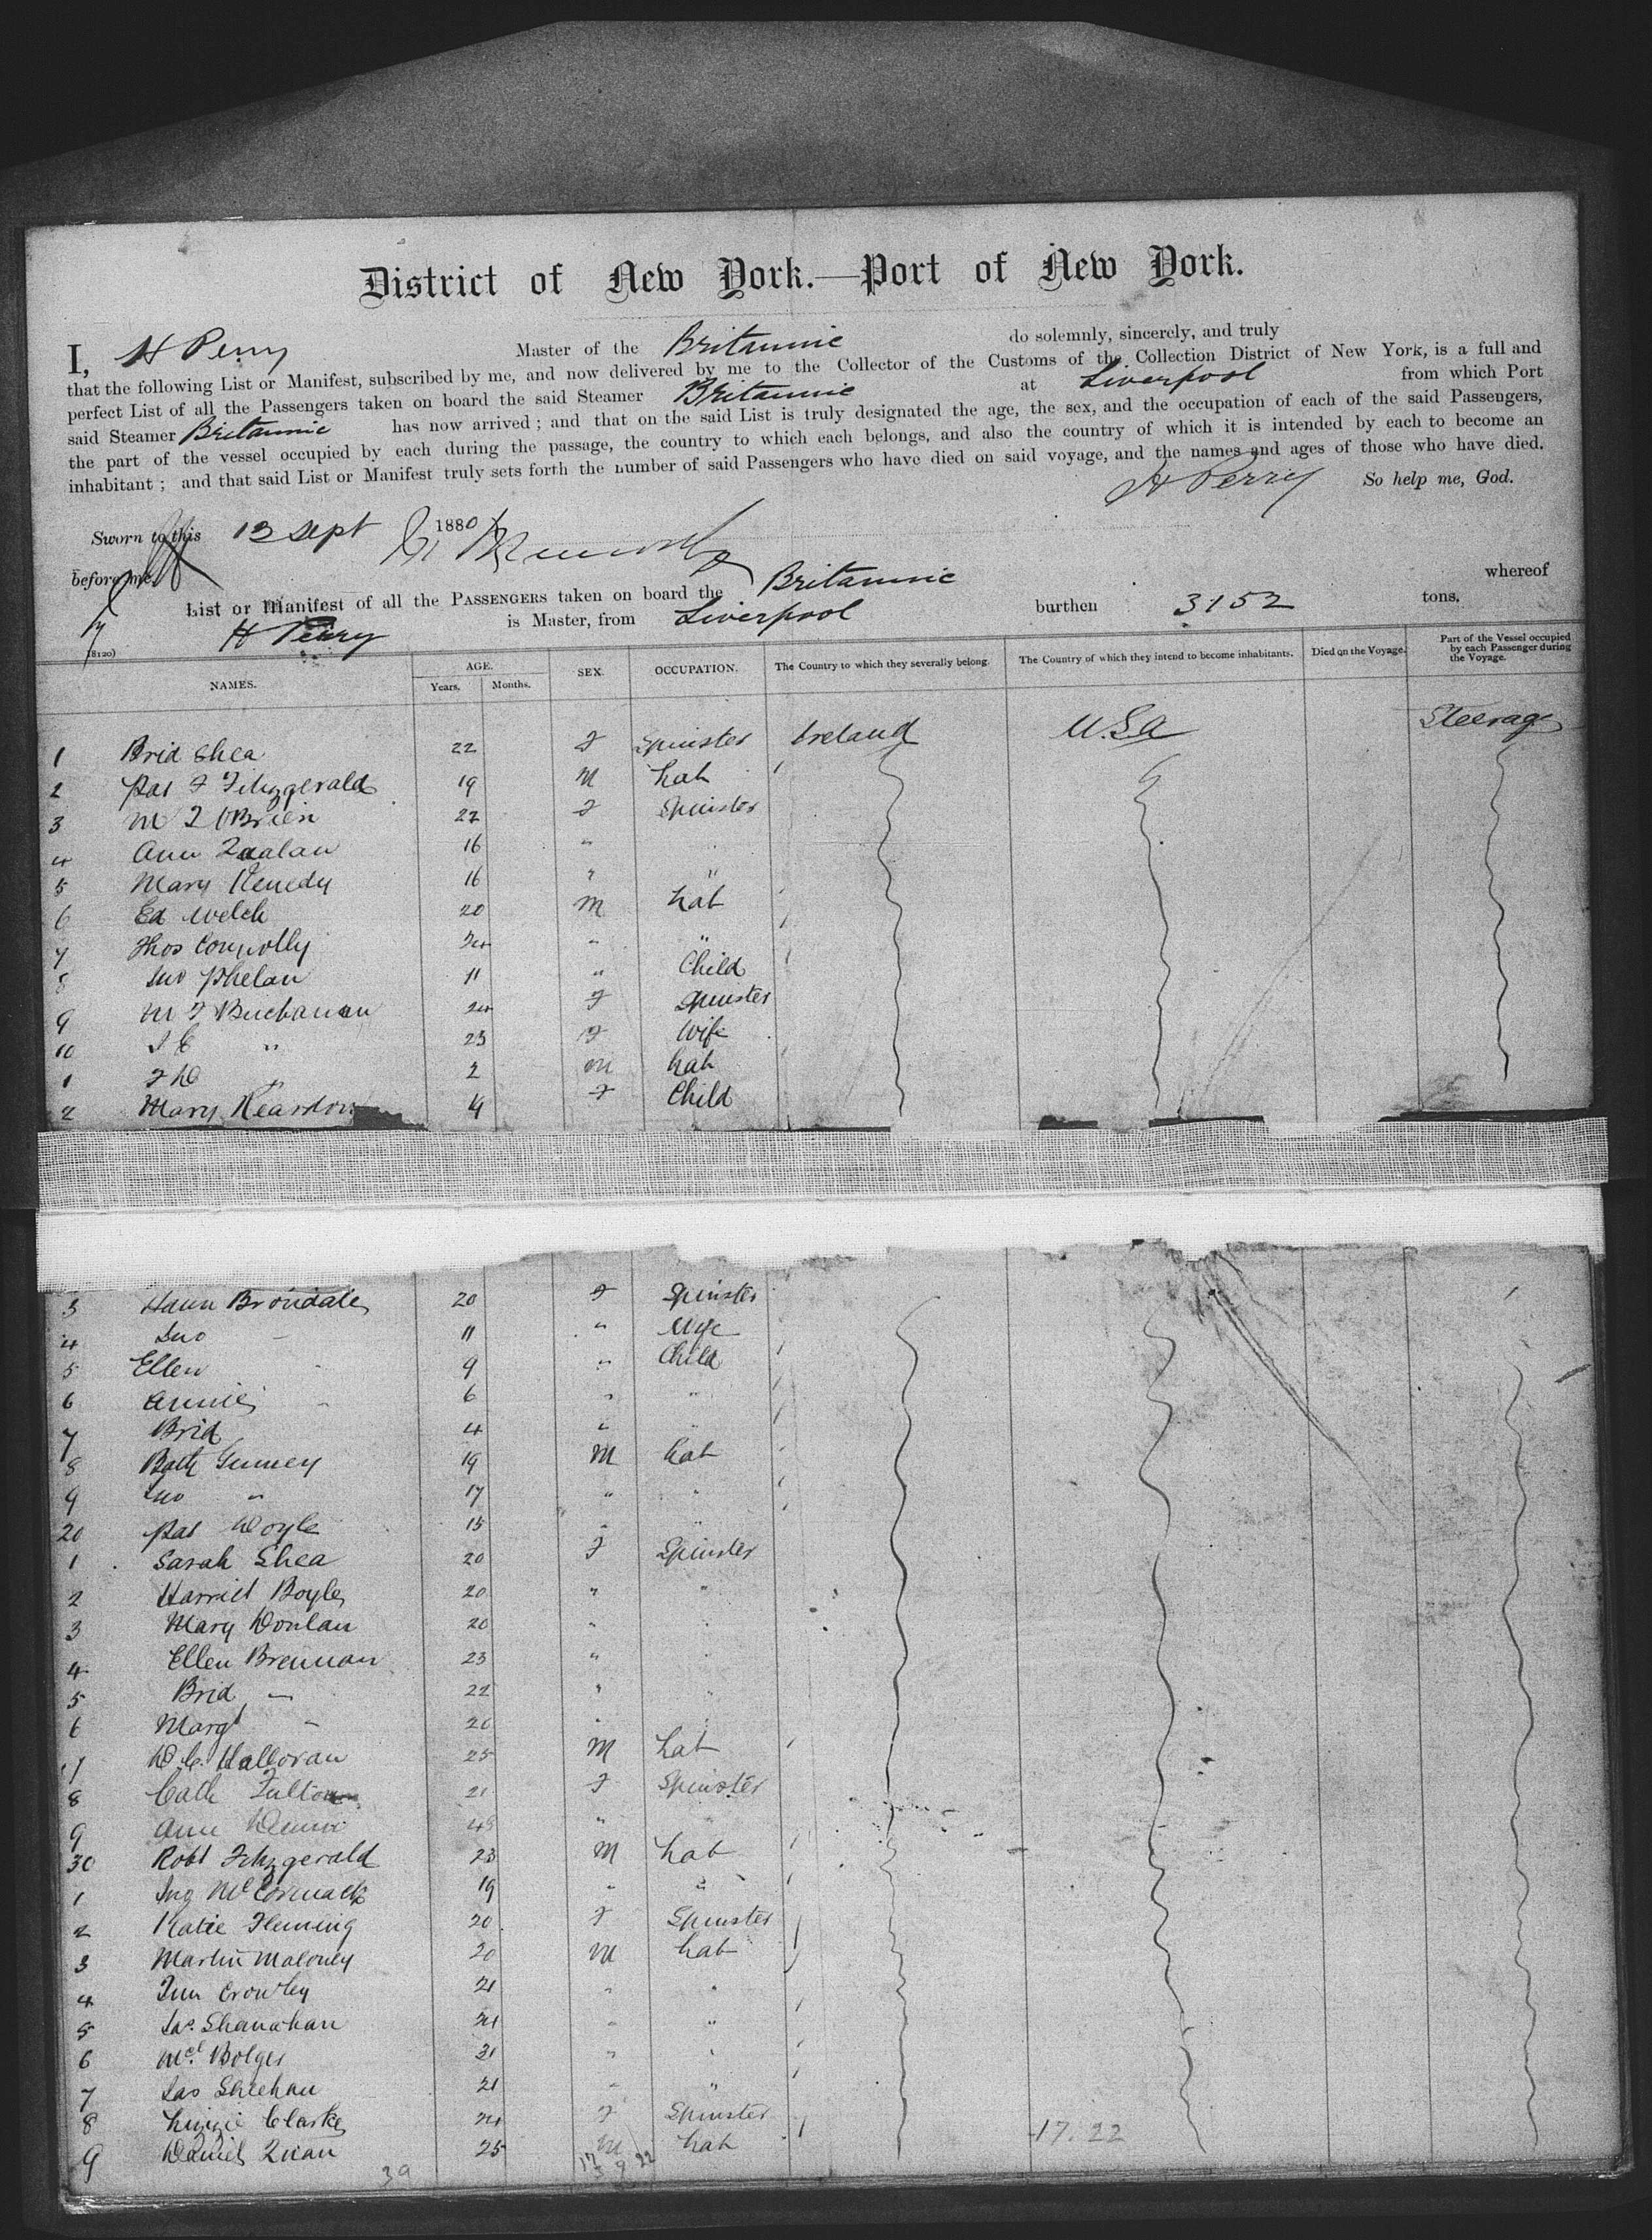 District of New York.—Port of New York.
I, H Perry Master of the Britannic do solemnly, sincerely, and truly
that the following List or Manifest, subscribed by me, and now delivered by me to the Collector of the Customs of the Collection District of New York, is a full and
perfect List of all the Passengers taken on board the said Steamer Britannic at Liverpool from which Port
said Steamer Britannic has now arrived; and that on the said List is truly designated the age, the sex, and the occupation of each of the said Passengers,
the part of the vessel occupied by each during the passage, the country to which each belongs, and also the country of which it is intended by each to become an
inhabitant; and that said List or Manifest truly sets forth the number of said Passengers who have died on said voyage, and the names and ages of those who have died.
H Perry So help me, God.
Sworn to this 13 Sept 1880
before me
List or Manifest of all the PASSENGERS taken on board the Britannic whereof
H Perry is Master, from Liverpool burthen 3152 tons.
(8120)
NAMES. AGE. Years. Months. SEX. OCCUPATION. The Country to which they severally belong. The Country of which they intend to become inhabitants. Died on the Voyage. Part of the Vessel occupied by each Passenger during the Voyage.
1 Brid Shea 22 F Spinster Ireland U.S.a Steerage
2 Pat F Fitzgerald 19 M Lab
3 M O'Brien 22 F Spinster
4 Ann 16 "
5 Mary Kenedy 16 " "
6 Ed Welch 20 M Lab
7 Thos Connolly 24 " "
8 Jno Phelan 11 " Child
9 M F Buchanan 24 F Spinster
10 " 23 F Wife
1 " 2 M Lab
2 Mary Reardon 4 F Child
3 Hann Brondale 20 F Spinster
4 Jno 11 " Wife
5 Ellen 9 " Child
6 Annie 6 " "
7 Brid 4 " "
8 19 M Lab
9 Jno " 17 " "
20 Pat Doyle 15 " "
1 Sarah Shea 20 F Spinster
2 Harriet Boyle 20 " "
3 Mary Donlan 20 " "
4 Ellen Brennan 23 " "
5 Brid — 22 " "
6 Margt — 20 "
7 D. C. Halloran 25 M Lab
8 Cath Fulton 21 F Spinster
9 Ann 48 "
30 Robt Fitzgerald 23 M Lab
1 Jno McCormack 19 " "
2 Katie Fleming 20 F Spinster
3 Martin Maloney 20 M Lab
4 Crowley 21 " "
5 Jas. Shanahan 21 " "
6 Mcl. Bolger 21 " "
7 Jas Sheehan 21 " "
8 Lizzie Clarke 21 F Spinster
9 Daniel 25 M Lab
17.22
39